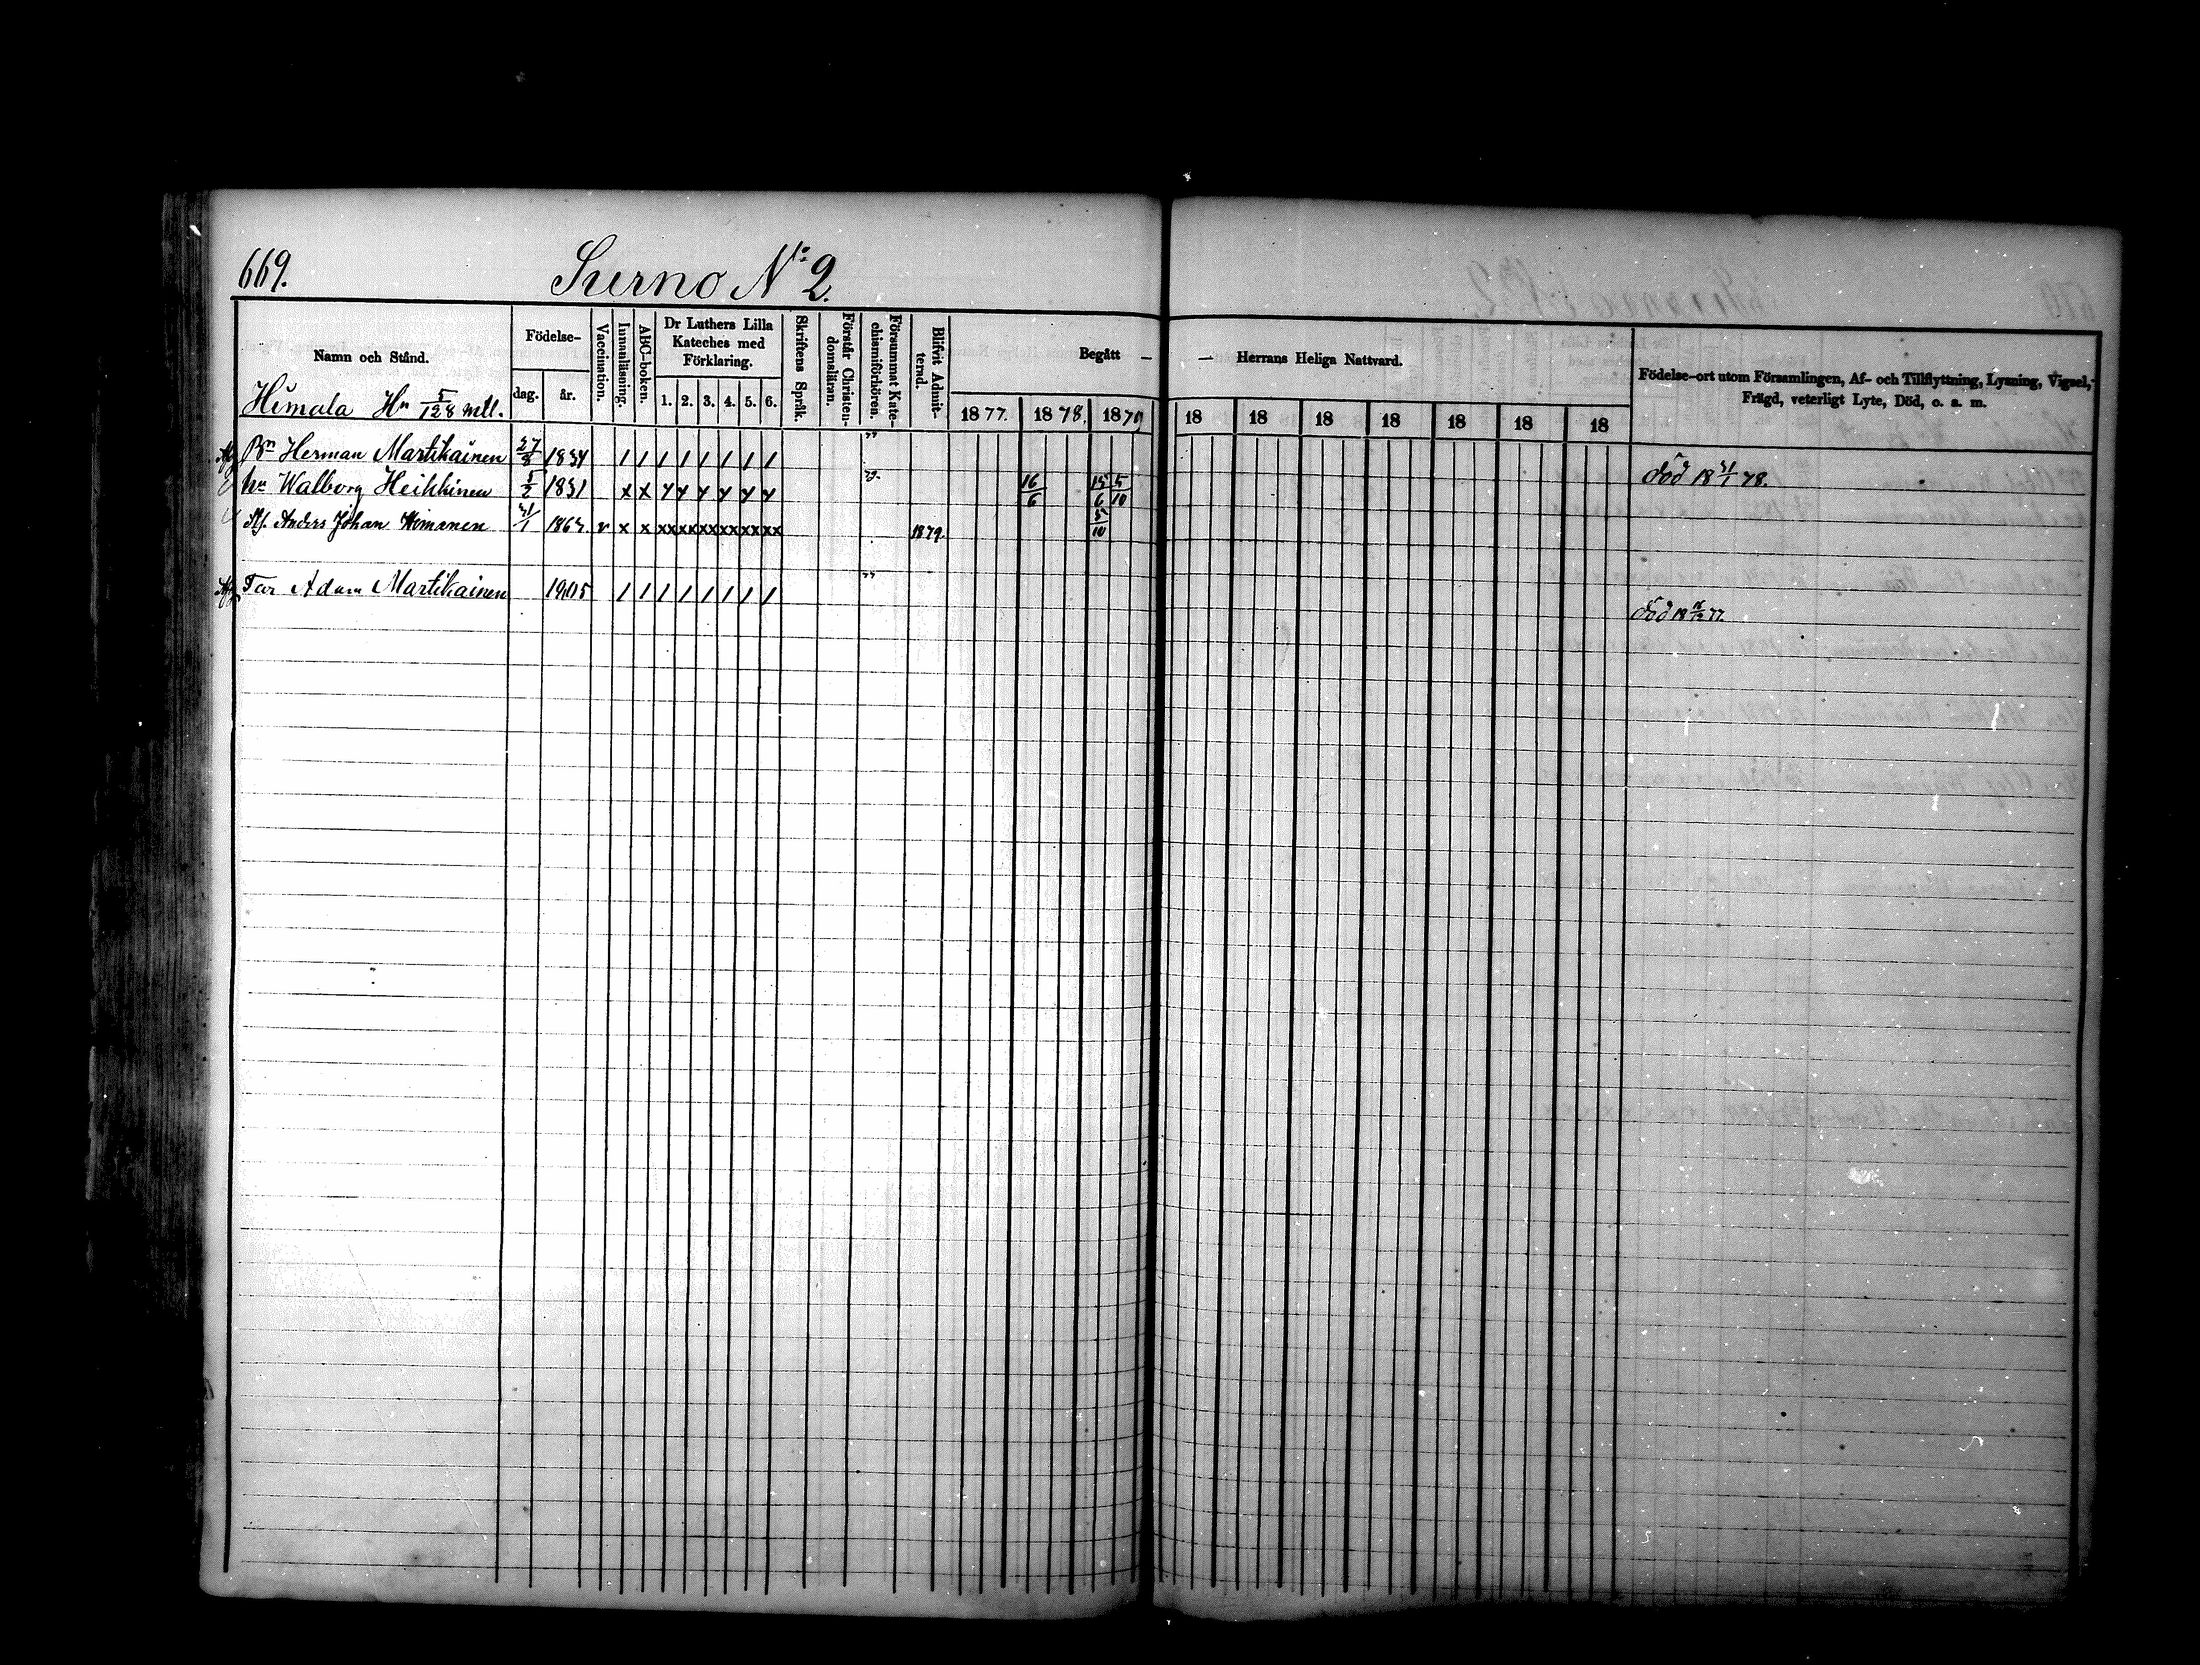 669. Surno No 2.
Namn och Stånd. Födelse- dag. år. Vaccination. Innanläsning. ABC-boken. Dr Luthers Lilla Kateches med Förklaring. 1. 2. 3. 4. 5. 6. Skriftens Språk. Förstår Christendomsläran. Försummat Katechismiförhören. Blifvit Admitterad. Begått — — Herrans Heliga Nattvard. 1877. 1878. 1879 18 18 18 18 18 18 18 Födelse-ort utom Församlingen, Af- och Tillflyttning, Lysning, Vigsel, Frägd, veterligt Lyte, Död, o. a. m.
Himala Hn 5/128 mtl.
Bn Herman Martikainen 27/8 1834 / / / / / / / / död 18 31/1 78.
hu Walborg Heikkinen 5/2 1831 x x y y y y y y 79. 16/6 15/6 5/10
Anders Johan Himanen 31/1 1863 v x x xx xx xx xx xx xx 1879. 5/10
Far Adam Martikainen 1805 / / / / / / / /
död 18 15/12 77.